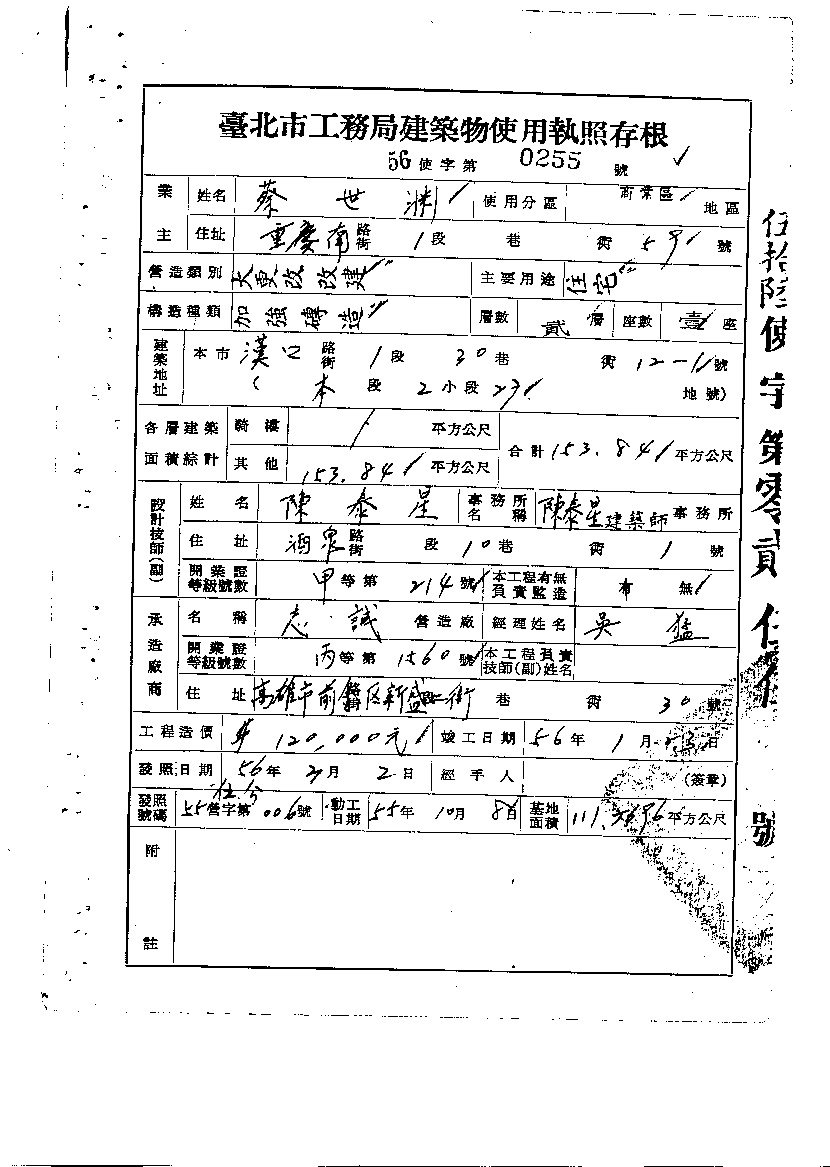 臺北市工務局建築物使用執照存根
56使字第 0255 號
業主 姓名 蔡世渊 使用分區 商業區 地區
住址 重慶南路街 1段 巷 街 59 號
營造類別 大更改改建 主要用途 住宅
構造種類 加強磚造 層數 貳層 座數 壹座
建築地址 本市 漢口路街 1段 30巷 街 12-1號
(本段 2小段 23 地號)
各層建築面積綜計 騎樓 / 平方公尺 合計 153.84 平方公尺
其他 153.84 平方公尺
設計技師(副) 姓名 陳泰星 事務所名稱 陳泰星建築師事務所
住址 酒泉路街 段 10巷 街 1號
開業證等級號數 甲等第 214號 本工程有無負責監造 有 無
承造廠商 名稱 志誠營造廠 經理姓名 吳猛
開業證等級號數 丙等第 1560號 本工程負責技師(副)姓名
住址 高雄市前鎮區新盛 街 巷 街 30號
工程造價 120,000元 竣工日期 56年 1月 日
發照日期 56年 2月 2日 經手人 (簽章)
發照號碼 55營字第 006號 動工日期 55年 10月 8日 基地面積 111. 平方公尺
附註
伍拾陸使字第零貳伍伍號